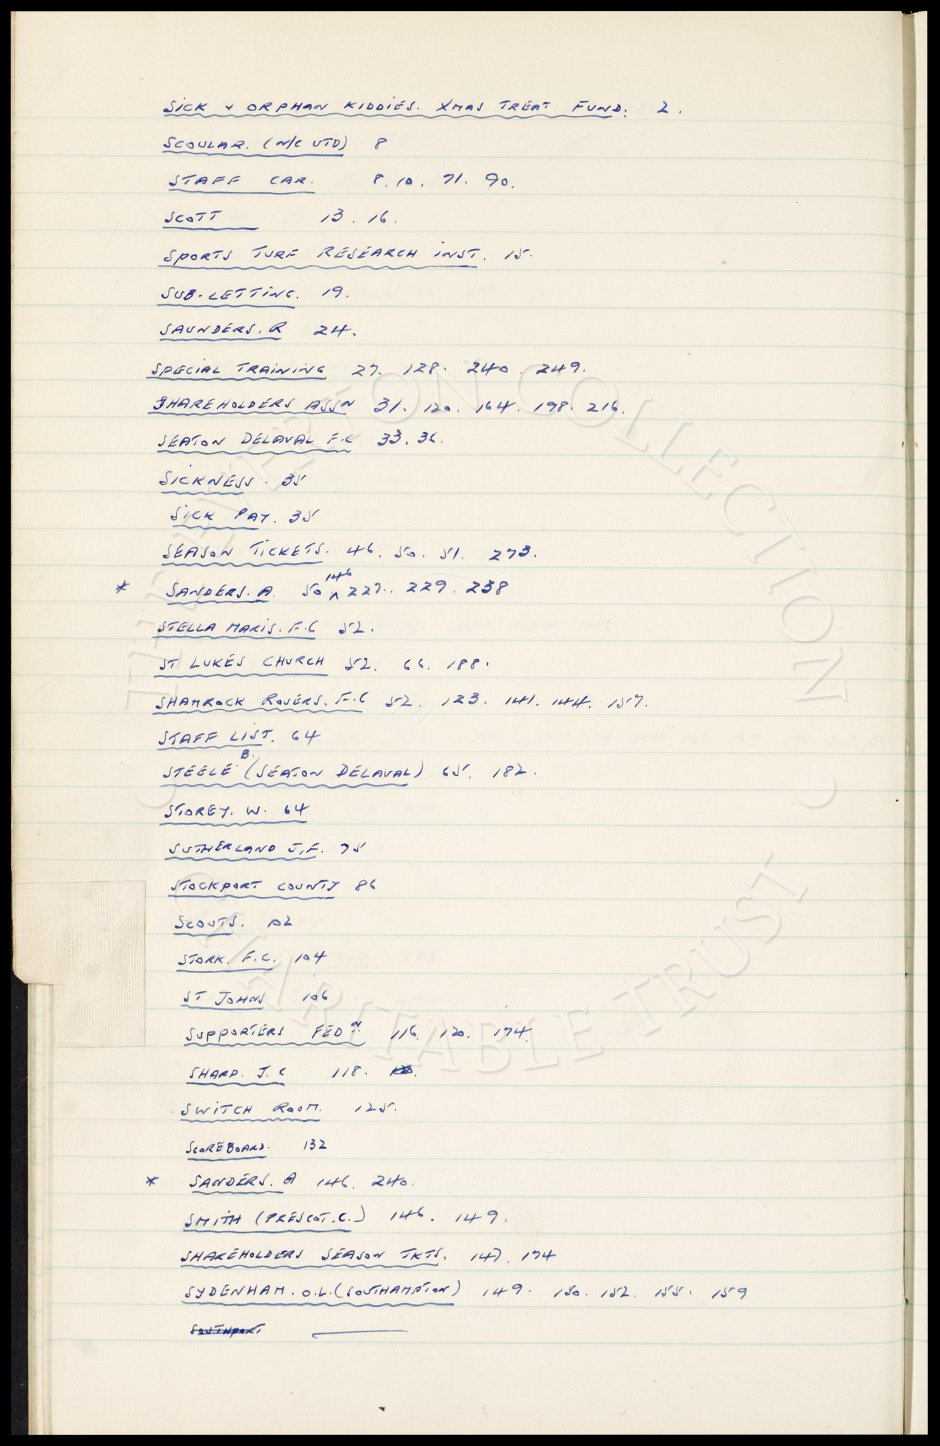 SICK & ORPHAN KIDDIES. XMAS TREAT FUND. 2.
SCOULAR. (N/C UTD) 8
STAFF CAR. 8. 10. 71. 90.
SCOTT 13. 16.
SPORTS TURF RESEARCH INST. 15.
SUB-LETTING. 19.
SAUNDERS. R 24.
SPECIAL TRAINING 27. 128. 240. 249.
SHAREHOLDERS ASSN 31. 120. 164. 198. 216.
SEATON DELAVAL F.C 33. 36.
SICKNESS. 35
SICK PAY. 35
SEASON TICKETS. 46. 50. 51. 273.
* SANDERS. A. 50 146 227. 229. 238
STELLA MARIS. F.C 52.
ST LUKES CHURCH 52. 66. 188.
SHAMROCK ROVERS. F.C 52. 123. 141. 144. 157.
STAFF LIST. 64
STEELE B. (SEATON DELAVAL) 65. 182.
STOREY. W. 64
SUTHERLAND J.F. 75
STOCKPORT COUNTY 86
SCOUTS. 102
STORK. F.C. 104
ST JOHNS 106
SUPPORTERS FEDN. 116. 120. 174.
SHARP. J.C 118.
SWITCH ROOM. 125.
SCOREBOARD. 132
* SANDERS. A 146. 240.
SMITH (PRESCOT.C.) 146. 149.
SHAREHOLDERS SEASON TKTS. 147. 174
SYDENHAM. O.L. (SOUTHAMPTON) 149. 150. 152. 155. 159
SOUTHPORT
THE EVERTON COLLECTION
CHARITABLE TRUST